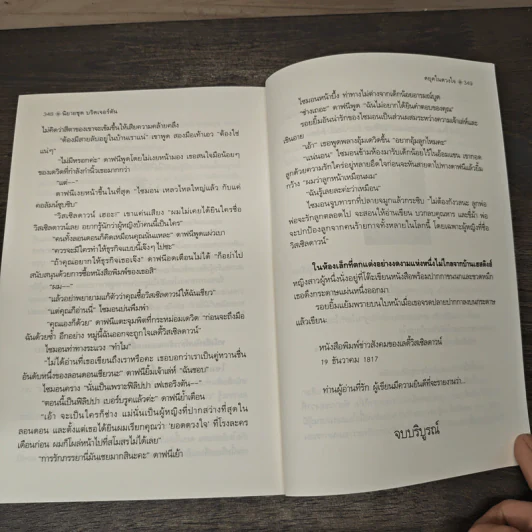 348 ๏ นิยายชุด บริดเจอร์ตัน
ไม่คิดว่าสีตาของเขาจะเข้มขึ้นได้เสียความคล้ายคลึง
“ต้องมีสายลับอยู่ในบ้านเราแน่” เขาพูด สองมือเท้าเอว “ต้องใช่
แน่ๆ”
“ไม่มีหรอกค่ะ” ดาฟนีพูดโดยไม่เงยหน้ามอง เธอสนใจมือน้อยๆ
ของเดวิดที่กำลังกำนิ้วเธอมากกว่า
“แต่—”
ดาฟนีเงยหน้าขึ้นในที่สุด “ไซมอน เหลวไหลใหญ่แล้ว ก็แค่
คอลัมน์ซุบซิบ”
“วิสเซิลดาวน์ เฮอะ!” เขาแค่นเสียง “ผมไม่เคยได้ยินใครชื่อ
วิสเซิลดาวน์เลย อยากรู้นักว่าผู้หญิงบ้าคนนี้เป็นใคร”
“คนทั้งลอนดอนก็คิดเหมือนคุณนั่นแหละ” ดาฟนีพูดแผ่วเบา
“ควรจะมีใครทำให้ธุรกิจแบบนี้เจ๊งๆ ไปซะ”
“ถ้าคุณอยากให้ธุรกิจเธอเจ๊ง” ดาฟนีอดเตือนไม่ได้ “ก็อย่าไป
สนับสนุนด้วยการซื้อหนังสือพิมพ์ของเธอสิ”
“ผม—”
“แล้วอย่าพยายามแก้ตัวว่าคุณซื้อวิสเซิลดาวน์ให้ฉันเชียว”
“แต่คุณก็อ่านนี่” ไซมอนบ่นพึมพำ
“คุณเองก็ด้วย” ดาฟนีแตะจุมพิตที่กระหม่อมเดวิด “ก่อนจะถึงมือ
ฉันด้วยซ้ำ อีกอย่าง หมู่นี้ฉันออกจะถูกใจเลดี้วิสเซิลดาวน์”
ไซมอนทำท่าระแวง “ทำไม”
“ไม่ได้อ่านที่เธอเขียนถึงเราหรือคะ เธอบอกว่าเราเป็นคู่หวานชื่น
อันดับหนึ่งของลอนดอนเชียวนะ” ดาฟนียิ้มเจ้าเล่ห์ “ฉันชอบ”
ไซมอนคราง “นั่นเป็นเพราะฟิลิปปา เฟเธอริงตัน—”
“ตอนนี้เป็นฟิลิปปา เบอร์บรูคแล้วค่ะ” ดาฟนีย้ำเตือน
“เอ้า จะเป็นใครก็ช่าง แม่นั่นเป็นผู้หญิงที่ปากสว่างที่สุดใน
ลอนดอน และตั้งแต่เธอได้ยินผมเรียกคุณว่า ‘ยอดดวงใจ’ ที่โรงละคร
เดือนก่อน ผมก็โผล่หน้าไปที่สโมสรไม่ได้เลย”
“การรักภรรยานี่มันเชยมากสินะคะ” ดาฟนีเย้า
ดยุคในดวงใจ ๏ 349
ไซมอนหน้าบึ้ง ท่าทางไม่ต่างจากเด็กน้อยอารมณ์บูด
“ช่างเถอะ” ดาฟนีพูด “ฉันไม่อยากได้ยินคำตอบของคุณ”
รอยยิ้มอันน่ารักของไซมอนเป็นส่วนผสมระหว่างความเจ้าเล่ห์และ
เขินอาย
“เอ้า” เธอพูดพลางอุ้มเดวิดขึ้น “อยากอุ้มลูกไหมคะ”
“แน่นอน” ไซมอนข้ามห้องมารับเด็กน้อยไว้ในอ้อมแขน เขากอด
ลูกด้วยความรักใคร่อยู่หลายอึดใจก่อนจะหันสายตาไปทางดาฟนีแล้วยิ้ม
กว้าง “ผมว่าลูกหน้าเหมือนผม”
“ฉันรู้เลยละค่ะว่าเหมือน”
ไซมอนจูบทารกที่ปลายจมูกแล้วกระซิบ “ไม่ต้องกังวลนะ ลูกพ่อ
พ่อจะรักลูกตลอดไป จะสอนให้อ่านเขียน บวกลบคูณหาร และขี่ม้า พ่อ
จะปกป้องลูกจากคนร้ายกาจทั้งหลายในโลกนี้ โดยเฉพาะผู้หญิงที่ชื่อ
วิสเซิลดาวน์—”
ในห้องเล็กที่ตกแต่งอย่างงดงามแห่งหนึ่งไม่ไกลจากบ้านเฮสติงส์
หญิงสาวผู้หนึ่งนั่งอยู่ที่โต๊ะเขียนหนังสือพร้อมปากกาขนนกและขวดหมึก
เธอดึงกระดาษแผ่นหนึ่งออกมา
รอยยิ้มแย้มพรายบนใบหน้าเมื่อเธอจรดปลายปากกาลงบนกระดาษ
แล้วเขียน:
หนังสือพิมพ์ข่าวสังคมของเลดี้วิสเซิลดาวน์
19 ธันวาคม 1817
ท่านผู้อ่านที่รัก ผู้เขียนมีความยินดีที่จะรายงานว่า...
จบบริบูรณ์